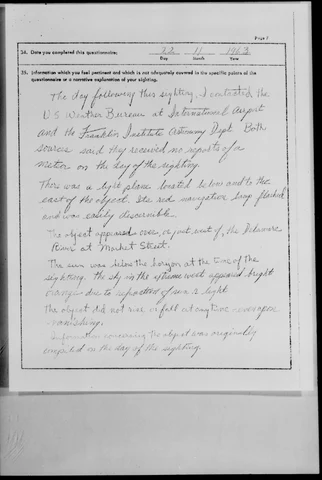 Page 7
34. Date you completed this questionnaire: 22 11 1963
Day Month Year
35. Information which you feel pertinent and which is not adequately covered in the specific points of the
questionnaire or a narrative explanation of your sighting.
The day following this sighting, I contacted the
U S Weather Bureau at International Airport
and the Franklin Institute Astronomy Dept. Both
sources said they received no reports of a
meteor on the day of the sighting.
There was a light plane located below and to the
east of the object. Its red navigation lamp flashed
and was easily discernible.
The object appeared over, or just west of, the Delaware
River at Market Street.
The sun was below the horizon at the time of the
sighting. The sky in the extreme west appeared bright
orange due to refraction of sun's light.
The object did not rise or fall at anytime, even upon
vanishing.
Information concerning the object was originally
compiled on the day of the sighting.